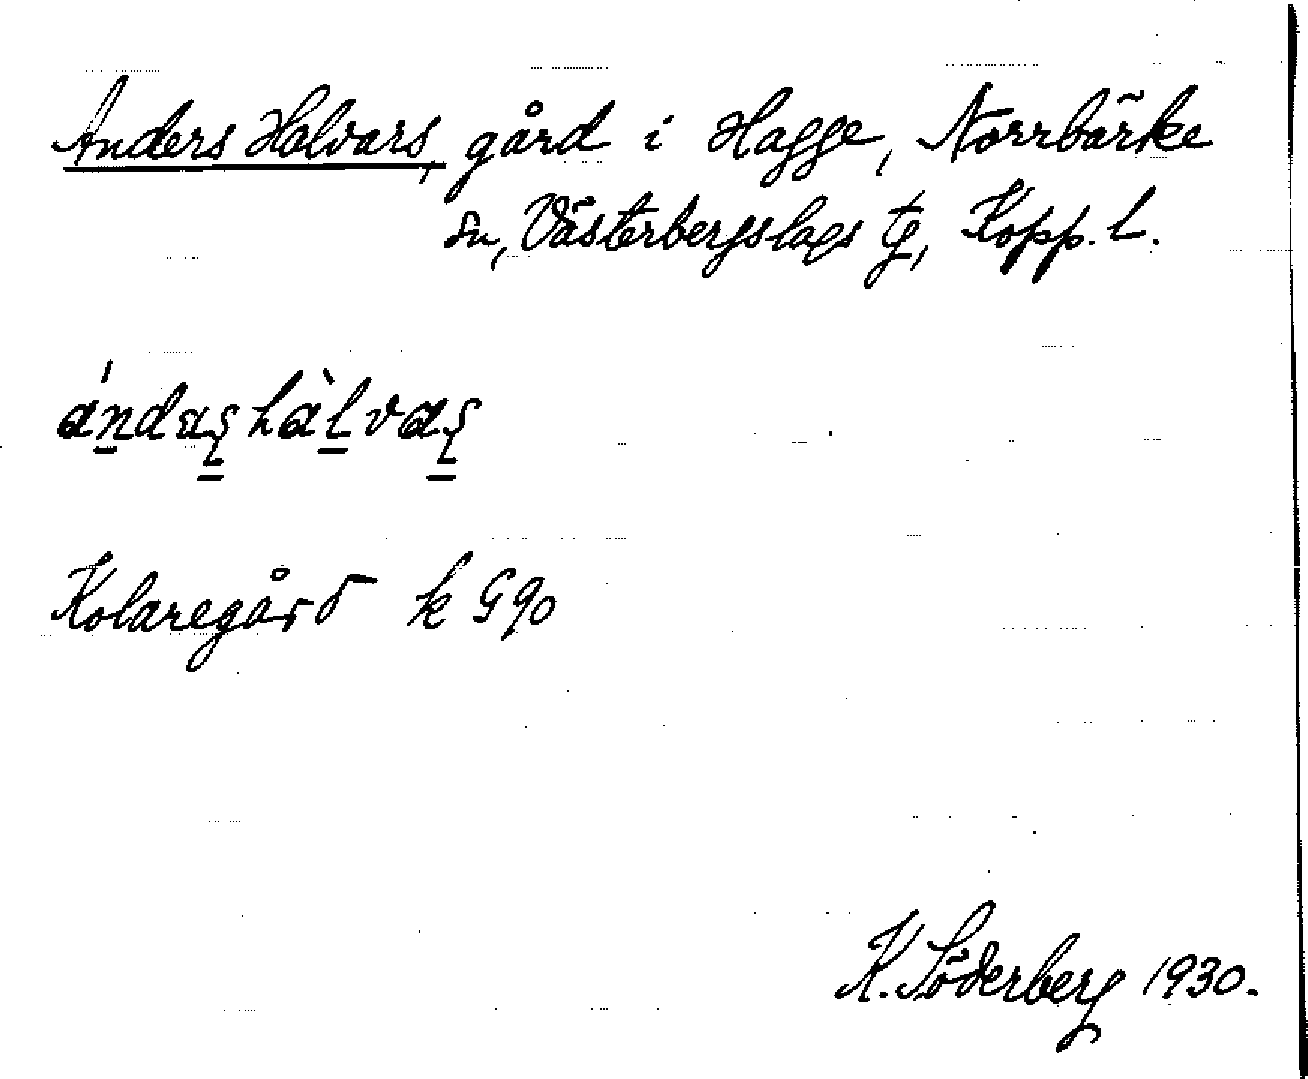 Anders Halvars, gård i Hagge, Norrbärke
sn, Västerbergslags tg, Kopp. l.
ándaʂ hàlvaʂ
Kolaregård k G 90
K. Söderberg 1930.